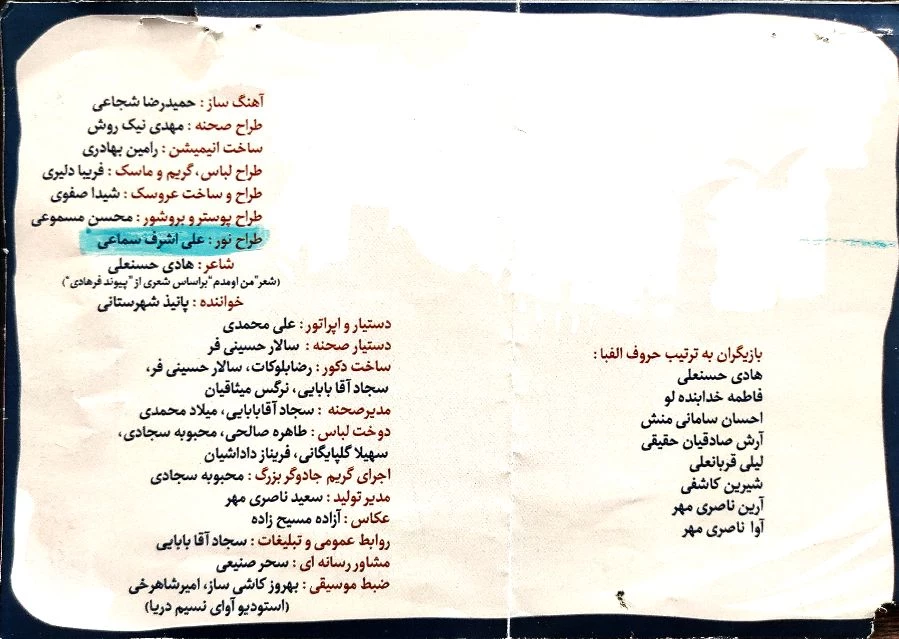 بازیگران به ترتیب حروف الفبا :
هادی حسنعلی
فاطمه خدابنده لو
احسان سامانی منش
آرش صادقیان حقیقی
لیلی قربانعلی
شیرین کاشفی
آرین ناصری مهر
آوا ناصری مهر
آهنگ ساز : حمیدرضا شجاعی
طراح صحنه : مهدی نیک روش
ساخت انیمیشن : رامین بهادری
طراح لباس، گریم و ماسک : فریبا دلیری
طراح و ساخت عروسک : شیدا صفوی
طراح پوستر و بروشور : محسن مسموعی
طراح نور : علی اشرف سماعی
شاعر : هادی حسنعلی
(شعر"من اومدم"براساس شعری از "پیوند فرهادی")
خواننده : پانیذ شهرستانی
دستیار و اپراتور : علی محمدی
دستیار صحنه : سالار حسینی فر
ساخت دکور : رضابلوکات، سالار حسینی فر،
سجاد آقا بابایی، نرگس میثاقیان
مدیرصحنه : سجاد آقابابایی، میلاد محمدی
دوخت لباس : طاهره صالحی، محبوبه سجادی،
سهیلا گلپایگانی، فریناز داداشیان
اجرای گریم جادوگر بزرگ : محبوبه سجادی
مدیر تولید : سعید ناصری مهر
عکاس : آزاده مسیح زاده
روابط عمومی و تبلیغات : سجاد آقا بابایی
مشاور رسانه ای : سحر صنیعی
ضبط موسیقی : بهروز کاشی ساز، امیرشاهرخی
(استودیو آوای نسیم دریا)